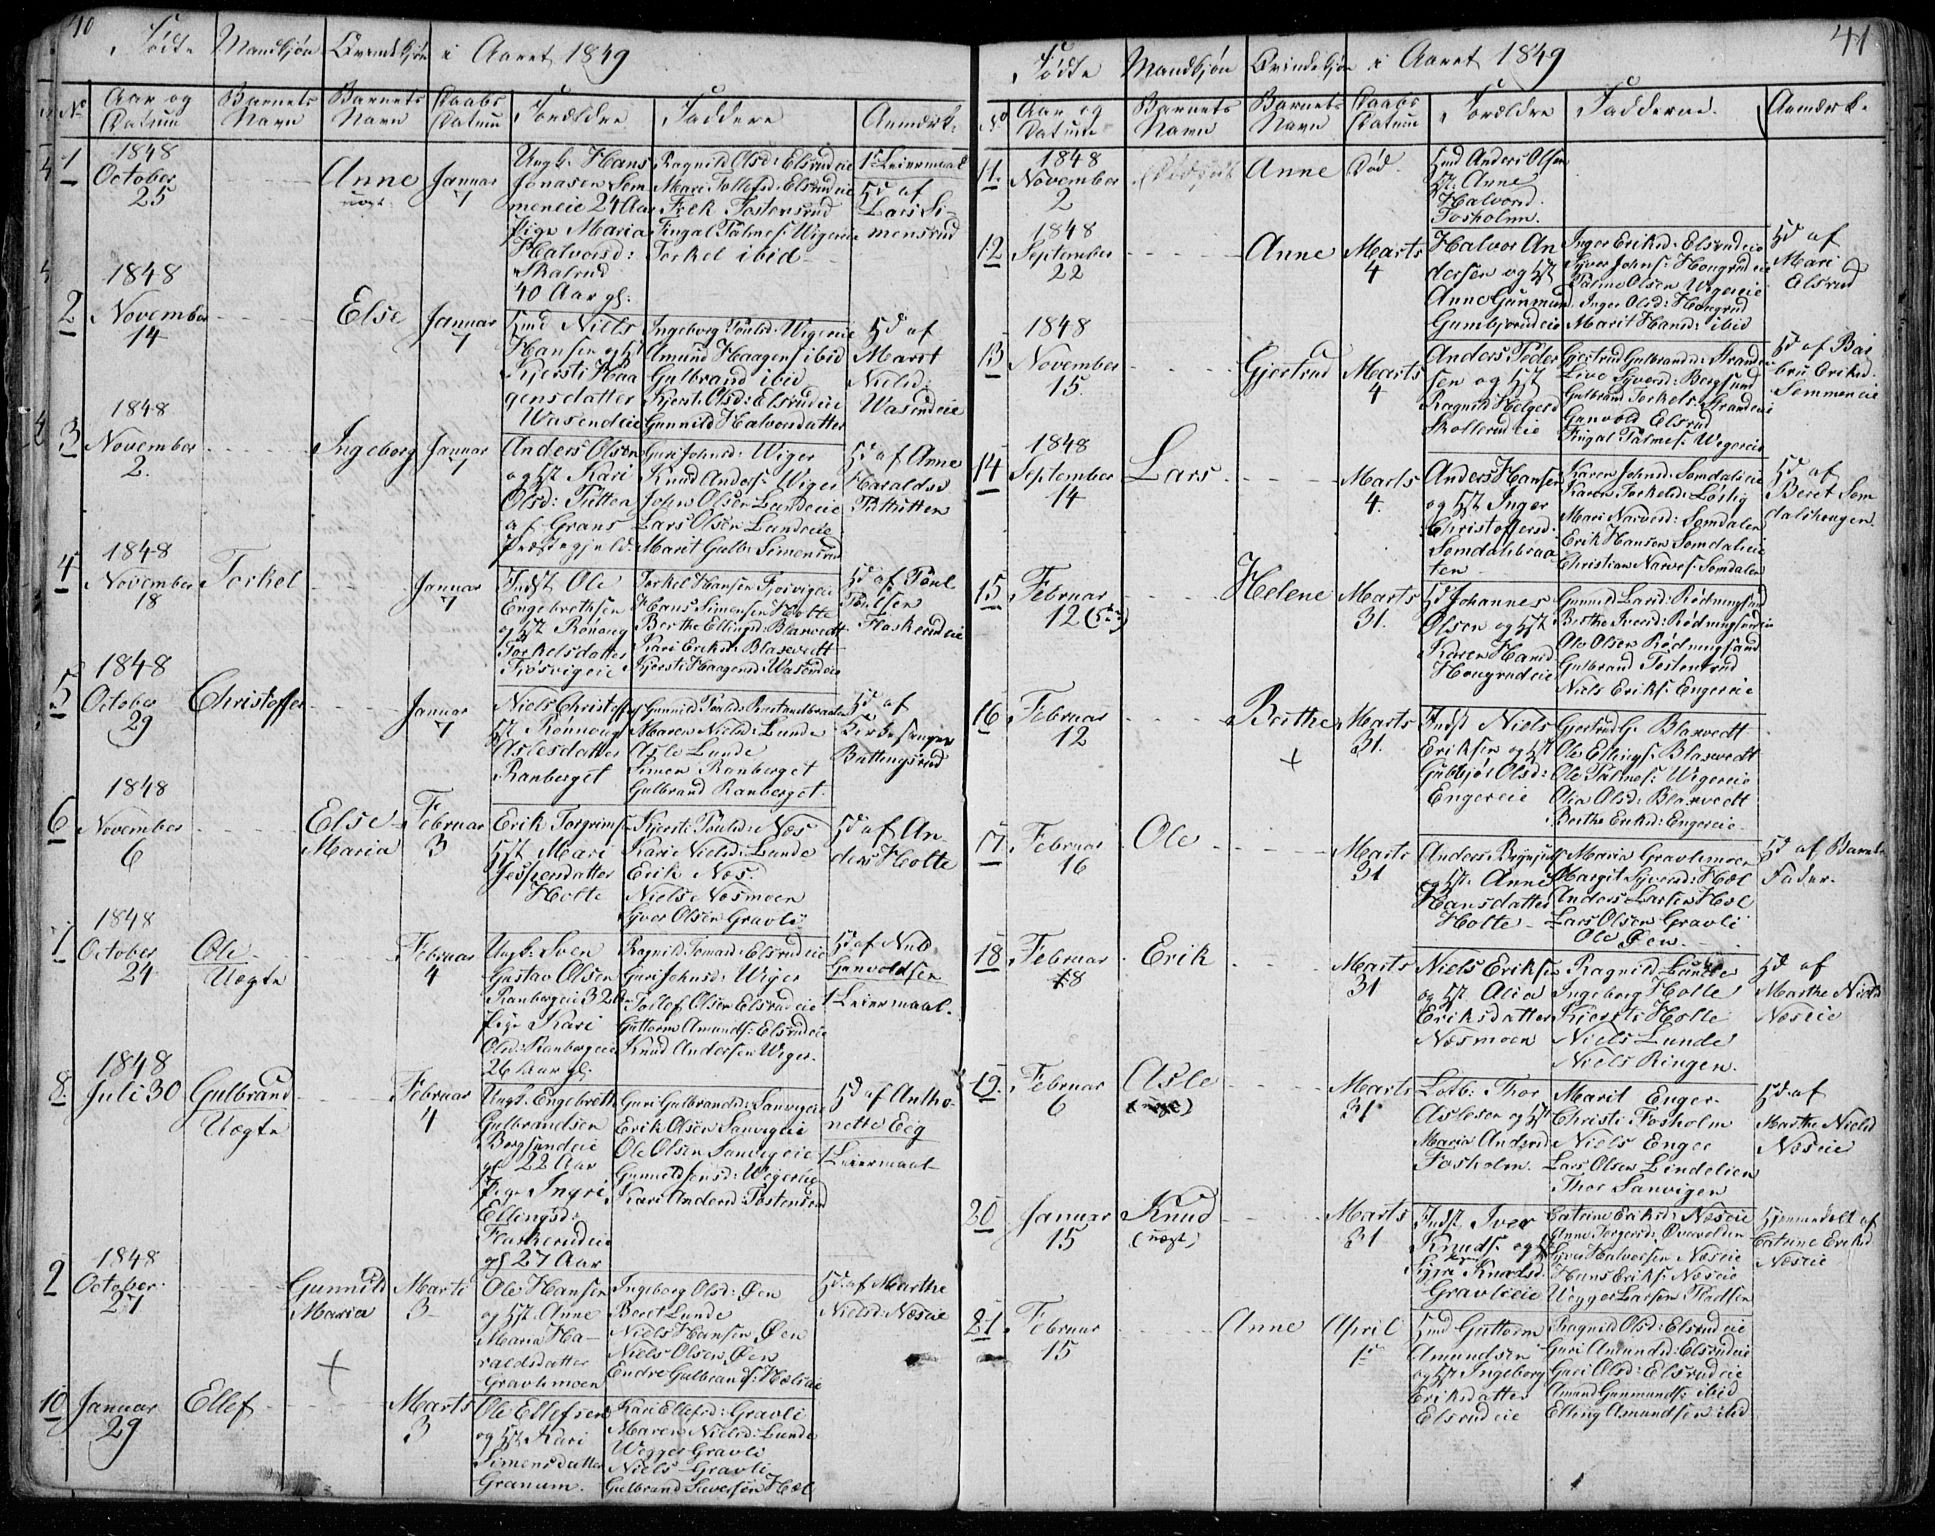 40
Fødte Mandkjøn Qvindekjøn i Aaret 1849
No
Aar og Datum
Barnets Navn
Barnets Navn
Daabs Datum
Forældre
Faddere
Anmærk.
1
1848
October
25
Anne
uægt.
Januar
7
Ungk. Hans
Jonasen Sem
meneie 24 Aar
Pige Maria
Halvorsd:
Skalrud
40 Aar gl:
Ragnild Olsd: Elsrudeie
Mari Tollefsd: Elsrudeie
Erik Tostensrud
Fingal Palmes: Wigereie
Torkel ibid
1ste Leiermaal
Hd af
Lars Si-
mensrud
2
1848
November
14
Else
Januar
7
Hmd Niels
Hansen og Hst
Kjersti Haa
gensdatter
Wasendeie
Ingeborg Poulsd: Wigereie
Amund Haagens ibid
Gulbrand ibid
Kjersti Olsd: Elsrudeie
Gunnild Halvorsdatter
Hd af
Marit
Nielsd:
Wasrudeie
3
1848
November
2.
Ingeborg
Januar
7
Anders Olsen
og Hst Kari
Olsd: Putten
af Grans
Præstegjeld:
Guri Johnsd: Wiger
Knud Anders: Wiger
John Olsen Lundeeie
Lars Olsen Lundeeie
Marit Gulb: Simensrud
Hd af Anne
Haraldsd
Putten
4
1848
November
18
Torkel
Januar
7
Indst Ole
Engebrethsen
og Hst Rønnaug
Torkelsdatter
Fjøsvigeie
Torkel Hansen Fjøsvigeie
Hans Simensen Holte
Berthe Ellingsd: Blaxvedt
Kari Eriksd: Blaxvedt
Kjersti Haagensd: Wasendeie
Hd af Poul
Poulsen
Flaskerudeie
5
1848
October
29
Christoffer
Januar
7
Niels Christoffs
Hst Rønnoug
Aslesdatter
Ranberget
Gunnild Poulsd:
Maren Nielsd: Lunde
Asle Lunde
Simen Ranberget
Gulbrand Ranberget.
Hd af
Kirkesanger
Buttingsrud
6
1848
November
6
Else
Maria
Februar
3
Erik Torgrims:
Hst. Mari
Jespersdatter
Holte
Kjersti Poulsd: Næs
Kari Nielsd: Lunde
Erik Næs.
Niels Næsmoen
Syver Olsen Gravli
Hd af An-
ders Holte
7
1848
October
24
Ole
Uægte
Februar
4
Ungk: Sven
Gustav Olsen
Ranbergeie 32 Aar
Pige Kari
Olsd: Ranbergeie
26 Aar gl.
Ragnild Tomasd: Elsrudeie
Guri Johnsd: Wiger
Tollef Olsen Elsrudeie
Guttorm Amunds: Elsrudeie
Knud Andersen Wiger.
Hd af Nub
Gunvoldsen
1 Leiermaal.
8.
1848
Juli 30
Gulbrand
Uægte
Februar
4
Ungk. Engebreth
Gulbrandsen
Bergsundeie
gl 22 Aar
Pige Ingri
Ellingsd:
Flaskerudeie
gl 27 Aar
Guri Gulbrandsd: Sanvigeie
Erik Olsen Sanvigeie
Ole Olsen Sanvigeie
Gunnild Jensd: Wigereie
Kari Andersd: Tostensrud
Hd af Antho-
nette Eeg
1 Leiermaal
1848
October.
27
Gunnild
Maria
Marts
3
Ole Hansen
og Hst. Anne
Maria Ha-
raldsdatter
Gravlimoen
Ingeborg Olsd: Øen
Beret Lunde
Niels Hansen Øen
Niels Olsen Øen
Endre Gulbrands: Hæleie
Hd. af Marthe
Nielsd: Næseie
10
Januar
29
Ellef
Marts
3
Ole Ellefsen
og Hst Kari
Simensdatter
Granum.
Kari Ellefsd: Gravli
Maren Nielsd: Lunde
Wegger Gravli
Niels Gravli
Gulbrand Siversen Hæl
41
Fødte Mandkjøn Qvindekjøn i Aaret 1849
No
Aar og Datum
Barnets Navn
Barnets Navn
Daabs Datum
Forældre
Fadderne.
Anmærk.
11.
1848
November
2
Anne
Død.
Hmd Anders Olsen
Hst: Anne
Halvorsd.
Fosholm.
12
1848
September
22
Anne
Marts
4
Halvor An
dersen og Hst
Anne Gunmund
Gumbjørudeie
Inger Eriksd: Elsrudeie
Syver Johns: Hougrudeie
Palme Olsen Wigereie
Inger Olsd: Hougrud
Marit Hansd: ibid
Hd af
Mari
Elsrud
13
1848
November
15.
Gjertrud
Marts
4
Anders Peder
sen og Hst
Ragnild Helgesd
Skollerudeie
Gjertrud Gulbrandsd: Strandeie
Live Syversd: Bergsund
Gulbrand Torkels: Strandeie
Gunvold Elsrud
Fingal Palmes: Wigereie
Hd af Bar
bro Eriksd.
Semmeneie
14
1848
September
14
Lars
Marts
4.
Anders Hansen
og Hst Inger
Christoffersd.
Somdalsbraa-
ten
Karen Johnsd: Somdalseie
Karen Torkelsd: Løslig
Mari Narvesd: Somdalen
Erik Hansen Somdalseie
Christian Narves: Somdalen
Hd af
Beret Som
dalshougen.
15
Februar
12
Helene
Marts
31.
Hd Johannes
Olsen og Hst
Karen Hansd
Hougrudeie
Gunnild Larsd: Rødningsand
Berthe Iversd: Rødningsandeie
Ole Olsen Rødningsand
Gulbrand Tostensrud
Niels Eriks: Engereie
16
Februar
12
Berthe
Marts
31.
Indst Niels
Eriksen og Hst
Gubbjør Olsd:
Engereie
Gjertrud G. Blaxvedt
Ole Ellings: Blaxvedt
Ole Palmes: Wigereie
Olia Olsd: Blaxvedt
Berthe Eriksd: Engereie
17
Februar
16
Ole
Marts
31
Anders Brynjuls
og Hst. Anne
Hansdatter
Holte
Maria Gravlimoen
Margit Syversd: Hæl
Anders Larsen Hæl
Lars Olsen Gravli
Ole Øen
Hd af Barnets
Fader.
18
Februar
18
Erik
Marts
31
Niels Eriksen
og Hst. Alia
Eriksdatter
Næsmoen
Ragnild Lunde
Ingeborg Holte
Kjersti Holte
Niels Lunde
Niels Ringen.
Hd af
Marthe Nielsd
Næseie
19.
Februar
6
Asle
Marts
31
Losb: Thor
Aslesen og Hst
Maria Andersd
Fosholm.
Marit Enger
Christi Fosholm
Niels Enger
Lars Olsen Lindelien
Thor Sanvigen
Hd. af
Marthe Nielsd
Næseie
20
Januar
15
Knud
(uægt.)
Marts
31
Indst Iver
Knuds: og Hst
Sigri Knudsd.
Gravlieie
Catrine Eriksd: Næseie
Anne Torgersd:
Syver Halvorsen Næseie
Hans Eriks: Næseie
Wegger Larsen
Hjemmedøbt af
Catrine Eriksd
Næseie
21
Februar
15
Anne
April
1ste
Hmd Guttorm
Amundsen
og Hst Ingeborg
Eriksdatter
Elsrudeie
Ragnild Olsd: Elsrudeie
Guri Amundsd: Elsrudeie
Guri Olsd: Elsrudeie
Amund Gunmunds: ibid
Elling Amundsen ibid